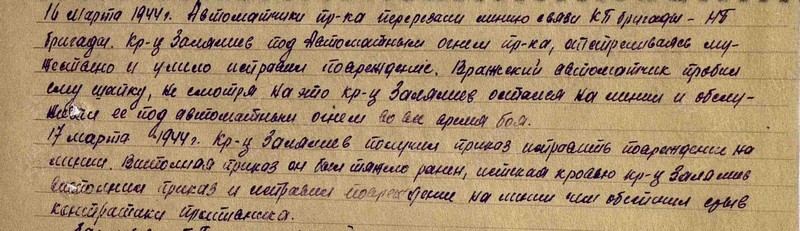 16 марта 1944г. Автоматчики пр-ка перервали линию связи КП бригады - НП
бригады. Кр-ц Залялиев под автоматным огнем пр-ка, отстреливаясь му-
жественно и умело исправил повреждение. Вражеский автоматчик пробил
ему шапку, не смотря на это кр-ц Залялиев остался на линии и обслу-
живал ее под автоматным огнем во время боя.
17 марта 1944г. Кр-ц Залялиев получил приказ исправить повреждение на
линии. Выполняя приказ он был тяжело ранен, истекая кровью кр-ц Залялиев
выполнил приказ и исправил повреждение на линии чем обеспечил срыв
контратаки противника.